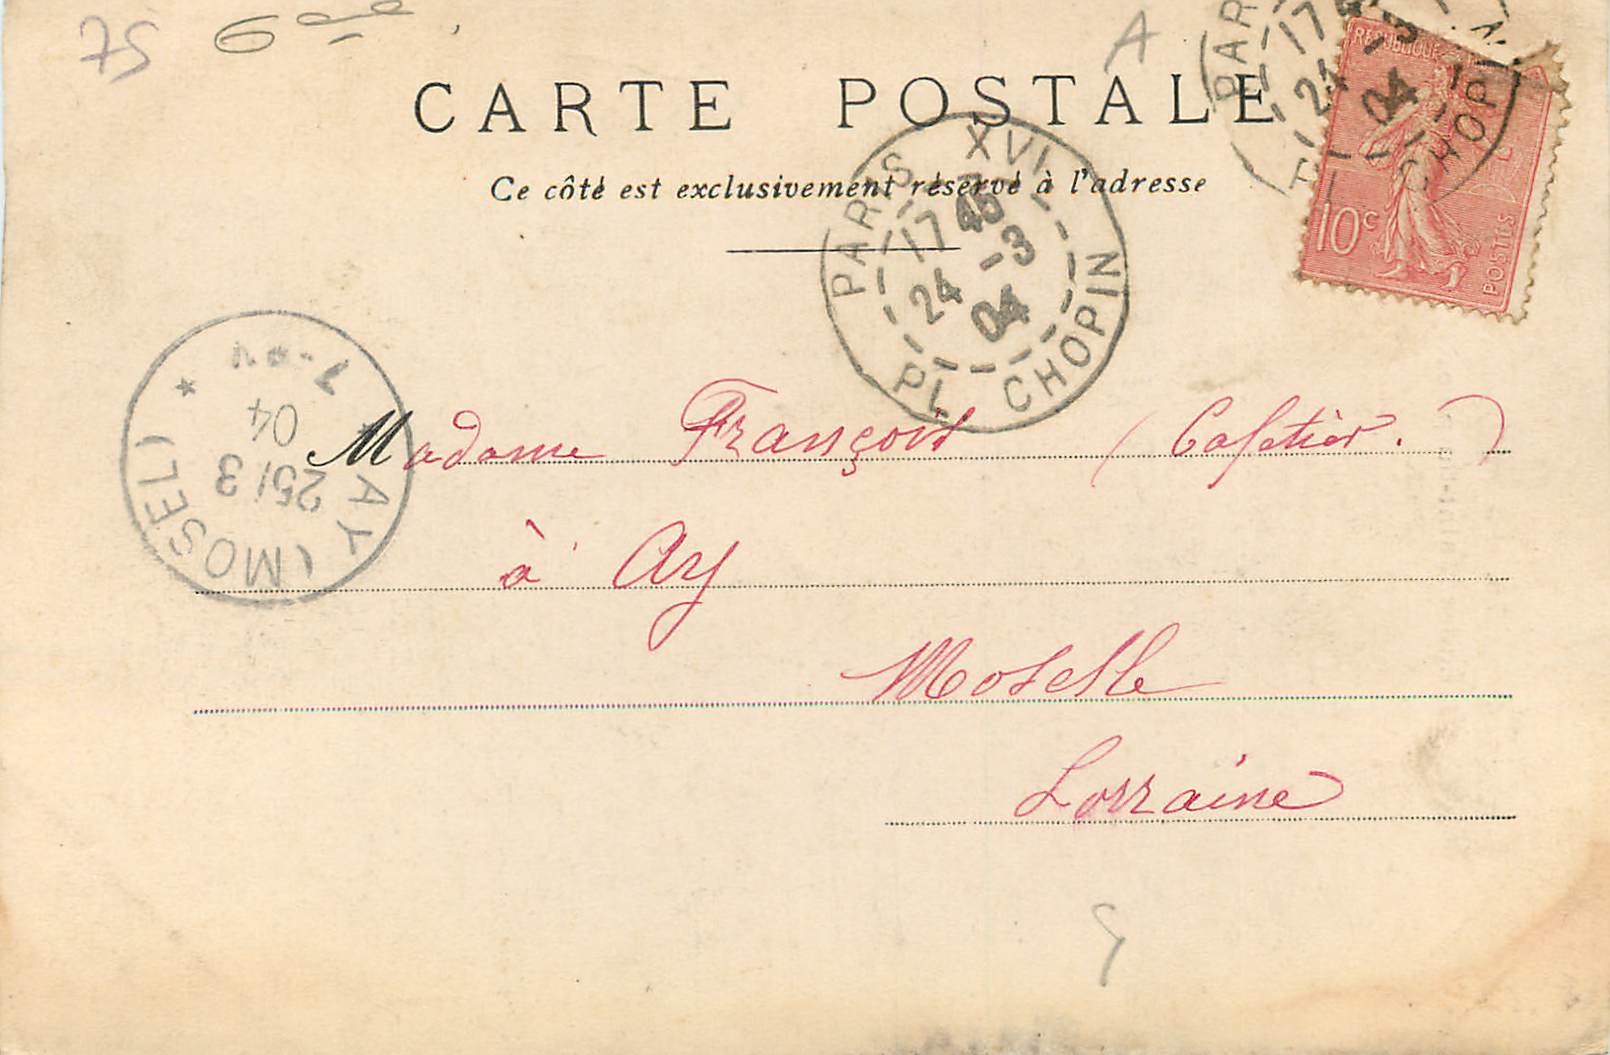 75 6
A
CARTE POSTALE
Ce côté est exclusivement réservé à l'adresse
PARIS XVI
17 45
24 -3
04
PL. CHOPIN
PAR
17 4
24 -3
04
PL CHOPIN
REPUBLIQUE
10c
POSTES
AY (MOSEL)
25/3
04
7-
Madame François (Cafetier.)
à Ay
Moselle
Lorraine